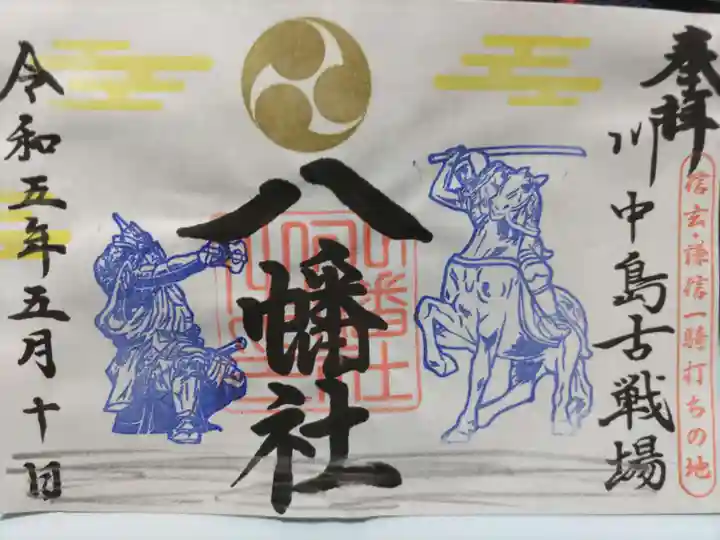 奉拝
川中島古戦場
信玄・謙信一騎打ちの地
八幡社
令和五年五月十日